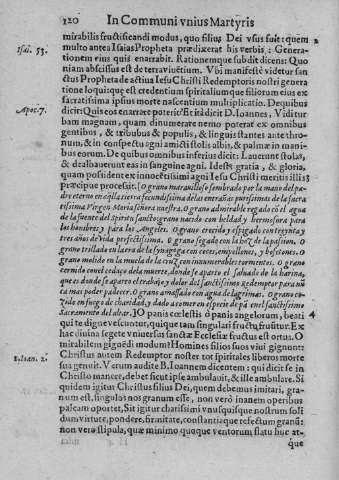 120 In Communi vnius Martyris
mirabilis fructificandi modus, quo filius Dei vsus fuit: quem 2
Isai. 53. multo antea Isaias Propheta prædixerat his verbis: Generationem
eius quis enarrabit. Rationemque subdit dicens: Quoniam
abscissus est de terra viuentium. Vbi manifestè videtur sanctus
Propheta de actiua Iesu Christi Redemptoris nostri generatione
loqui: quæ est credentium spiritaliumque filiorum eius ex
sacratissima ipsius morte nascentum multiplicatio. De quibus
Apoc. 7. dicit: Quis eos enarrare poterit? Et inquit D. Ioannes, Vidi turbam
magnam, quam dinumerare nemo poterat ex omnibus
gentibus, & tribubus & populis, & linguis stantes ante thronum,
& in conspectu agni amicti stolis albis, & palmæ in manibus
eorum. De quibus omnibus inferius dicit: Lauerunt stolas,
& dealbauerunt eas in sanguine agni. Id est gratia, & gloria,
quam possident ex innocentissimi agni Iesu Christi meritis illis 3
præcipue processit. [O grano marauilloso sembrado por la mano del padre
eterno en aquella tierra fecundissima de las entrañas purissimas de la sacratissima
Virgen Maria señora nuestra. O grano admirable regado cõ el agua
de la fuente del Spiritu sancto: grano nacido con beldad y hermosura para
los hombres y para los Angeles. O grano crecido y espigado con treynta y
tres años de vida perfectissima. O grano segado con la hoz de la passion. O
grano trillado en la era de la synagoga con coces, empellones, y bofetones. O
grano molido en la muela de la cruz con innumerables tormentos. O grano
cernido con el cedaço de la muerte, donde se aparto el saluado de la harina,
que es donde se aparto el trabajo y dolor del sanctissimo Redemptor para nũca
mas poder padecer. O grano amassado con agua de lagrimas. O grano cozido
en fuego de charidad, y dado a comer en especie de pã en el sanctissimo
Sacramento del altar.] O panis cœlestis ô panis angelorum, beati 4
qui te digne vescuntur, quique tam singulari fructu fruuntur. Ex
hac diuina segete vniuersus sanctæ Ecclesiæ fructus est ortus. O
mirabilem gignẽdi modum! Homines filios suos viui gignunt:
Christus autem Redemptor noster tot spiritales liberos morte
1. Ioan. 2. sua genuit. Verum audite B. Ioannem dicentem: qui dicit se in
Christo manere, debet sicut ipse ambulauit, & ille ambulare. Si
quidem igitur Christus filius Dei, quem debemus imitari, granum
est, singulos nos granum esse, non verò inanem operibus
paleam oportet, Sit igitur charissimi vnusquisque nostrum solidum
virtute, pondere, firmitate, constantiaque refectum granũ:
non verò stipula, quæ minimo quoque ventorum flatu huc at-
que